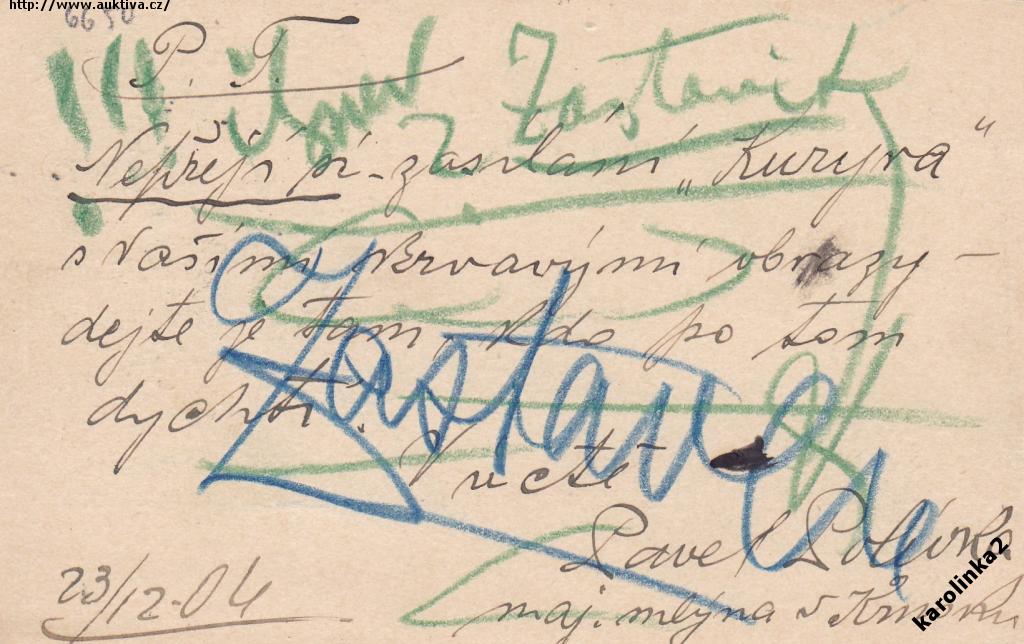 http://www.auktiva.cz/
6650
P. T.
!!! Zastavit
Nepřeji si zasílání „Kurýra“
s Vašimi krvavými obrazy –
dejte je tam, kdo po tom
dychtí. V úctě
Pavel Polívka
maj. mlýna v
23/12. 04
karolinka2